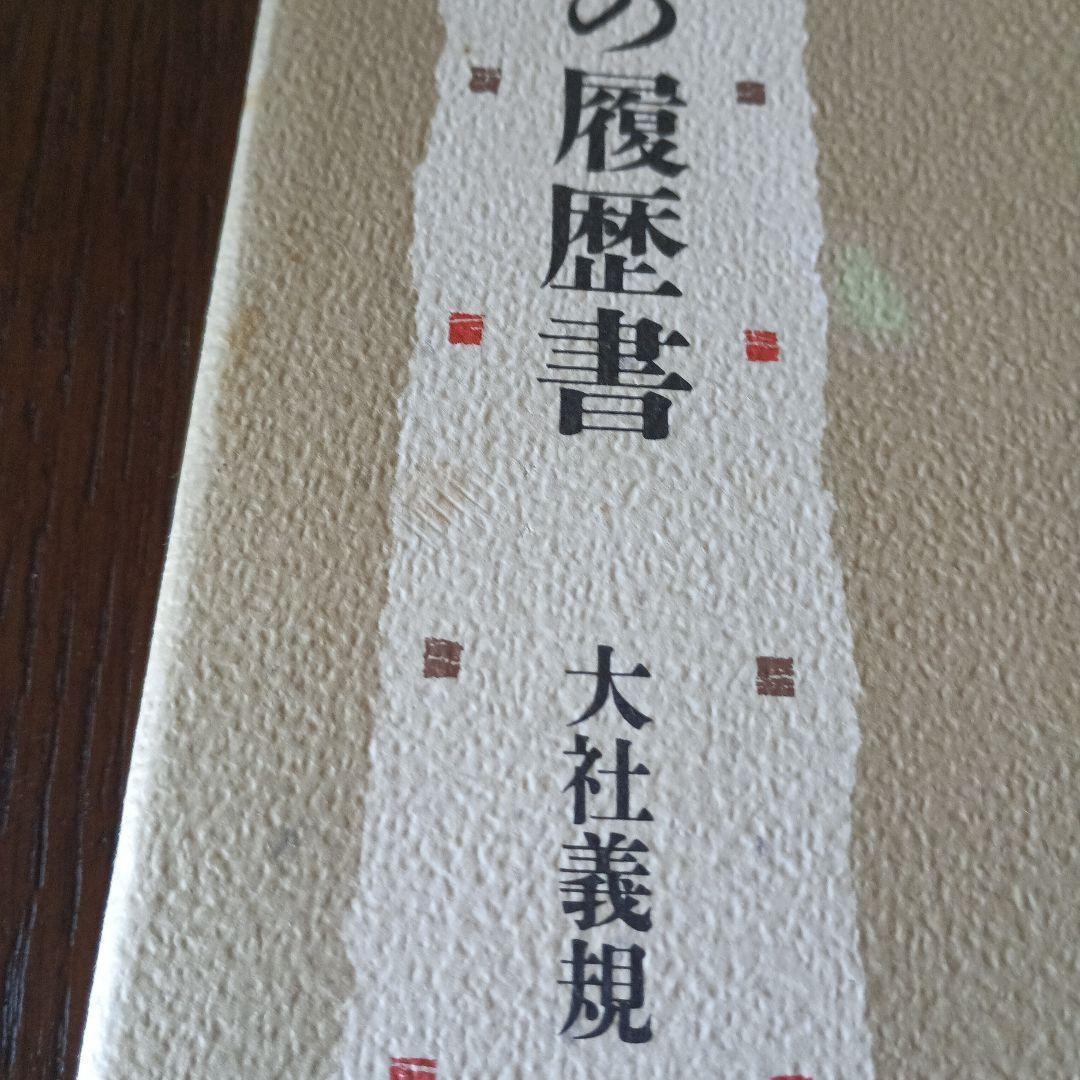 の履歴書
大社義規